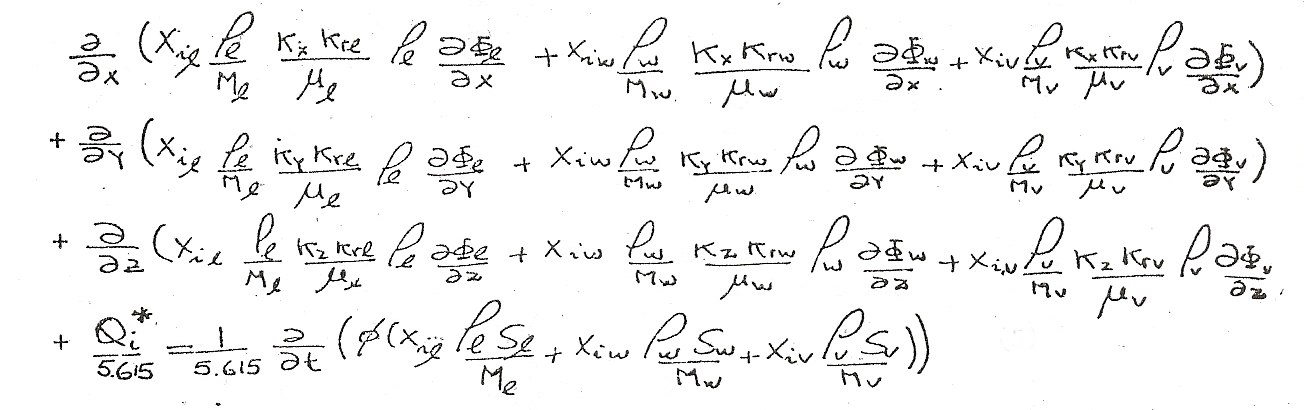 ∂/∂x (x_{iℓ} ρ_ℓ/M_ℓ K_x K_{rℓ}/μ_ℓ ρ_ℓ ∂Φ_ℓ/∂x + x_{iw} ρ_w/M_w K_x K_{rw}/μ_w ρ_w ∂Φ_w/∂x + x_{iv} ρ_v/M_v K_x K_{rv}/μ_v ρ_v ∂Φ_v/∂x)
+ ∂/∂Y (x_{iℓ} ρ_ℓ/M_ℓ K_y K_{rℓ}/μ_ℓ ρ_ℓ ∂Φ_ℓ/∂Y + x_{iw} ρ_w/M_w K_y K_{rw}/μ_w ρ_w ∂Φ_w/∂Y + x_{iv} ρ_v/M_v K_y K_{rv}/μ_v ρ_v ∂Φ_v/∂Y)
+ ∂/∂z (x_{iℓ} ρ_ℓ/M_ℓ K_z K_{rℓ}/μ_ℓ ρ_ℓ ∂Φ_ℓ/∂z + x_{iw} ρ_w/M_w K_z K_{rw}/μ_w ρ_w ∂Φ_w/∂z + x_{iv} ρ_v/M_v K_z K_{rv}/μ_v ρ_v ∂Φ_v/∂z
+ Q_i^*/5.615 = 1/5.615 ∂/∂t (φ(x_{iℓ} ρ_ℓ S_ℓ/M_ℓ + x_{iw} ρ_w S_w/M_w + x_{iv} ρ_v S_v/M_v))